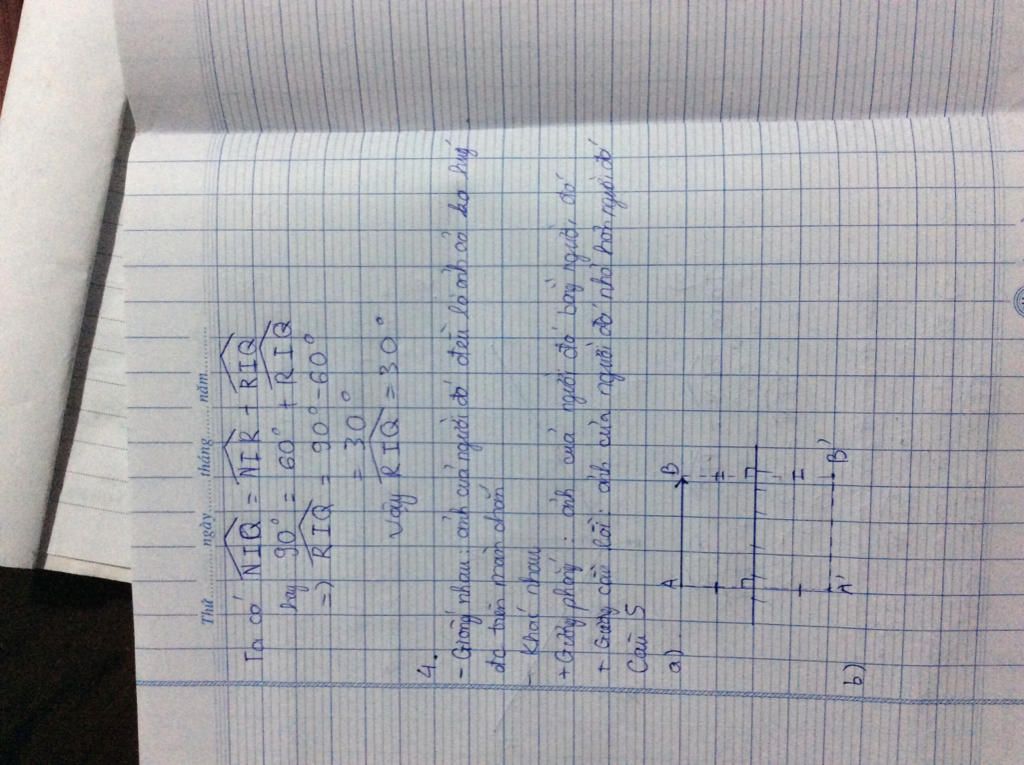 Thứ........ngày........tháng........năm........
Ta có NIQ = NIR + RIQ
hay 90° = 60° + RIQ
=) RIQ = 90° - 60°
= 30°
Vậy RIQ = 30°
4.
- Giống nhau: ảnh của người đó đều là ảnh ảo ko hứg
đc trên màn chắn
- Khác nhau
+ Gương phẳng: ảnh của người đó bằng người đó
+ Gương cầu lồi: ảnh của người đó nhỏ hơn người đó
Câu 5
a)
A B
A' B'
b)